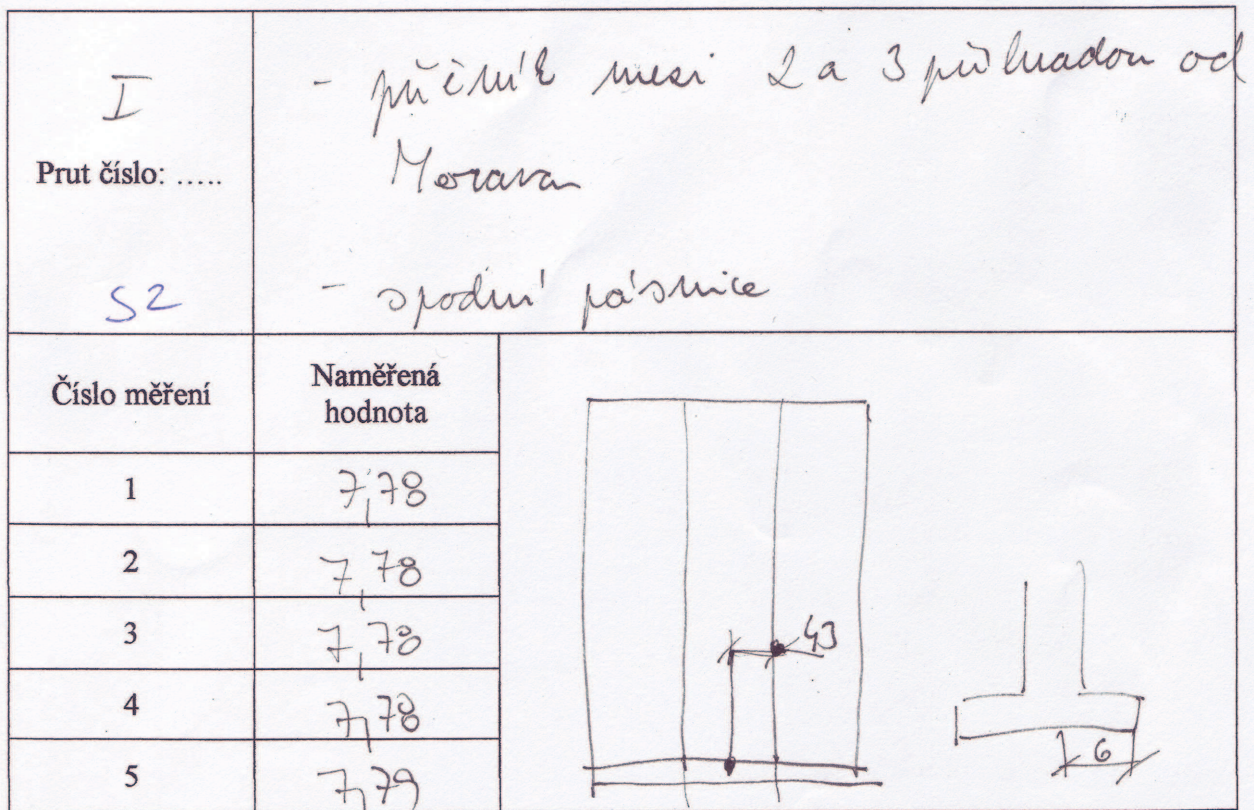 I
Prut číslo: .....
S2
- příčník mezi 2 a 3 příhradou od
Moravan
- spodní pásnice
Číslo měření
Naměřená
hodnota
1 7,78
2 7,78
3 7,78
4 7,78
5 7,79
43
6